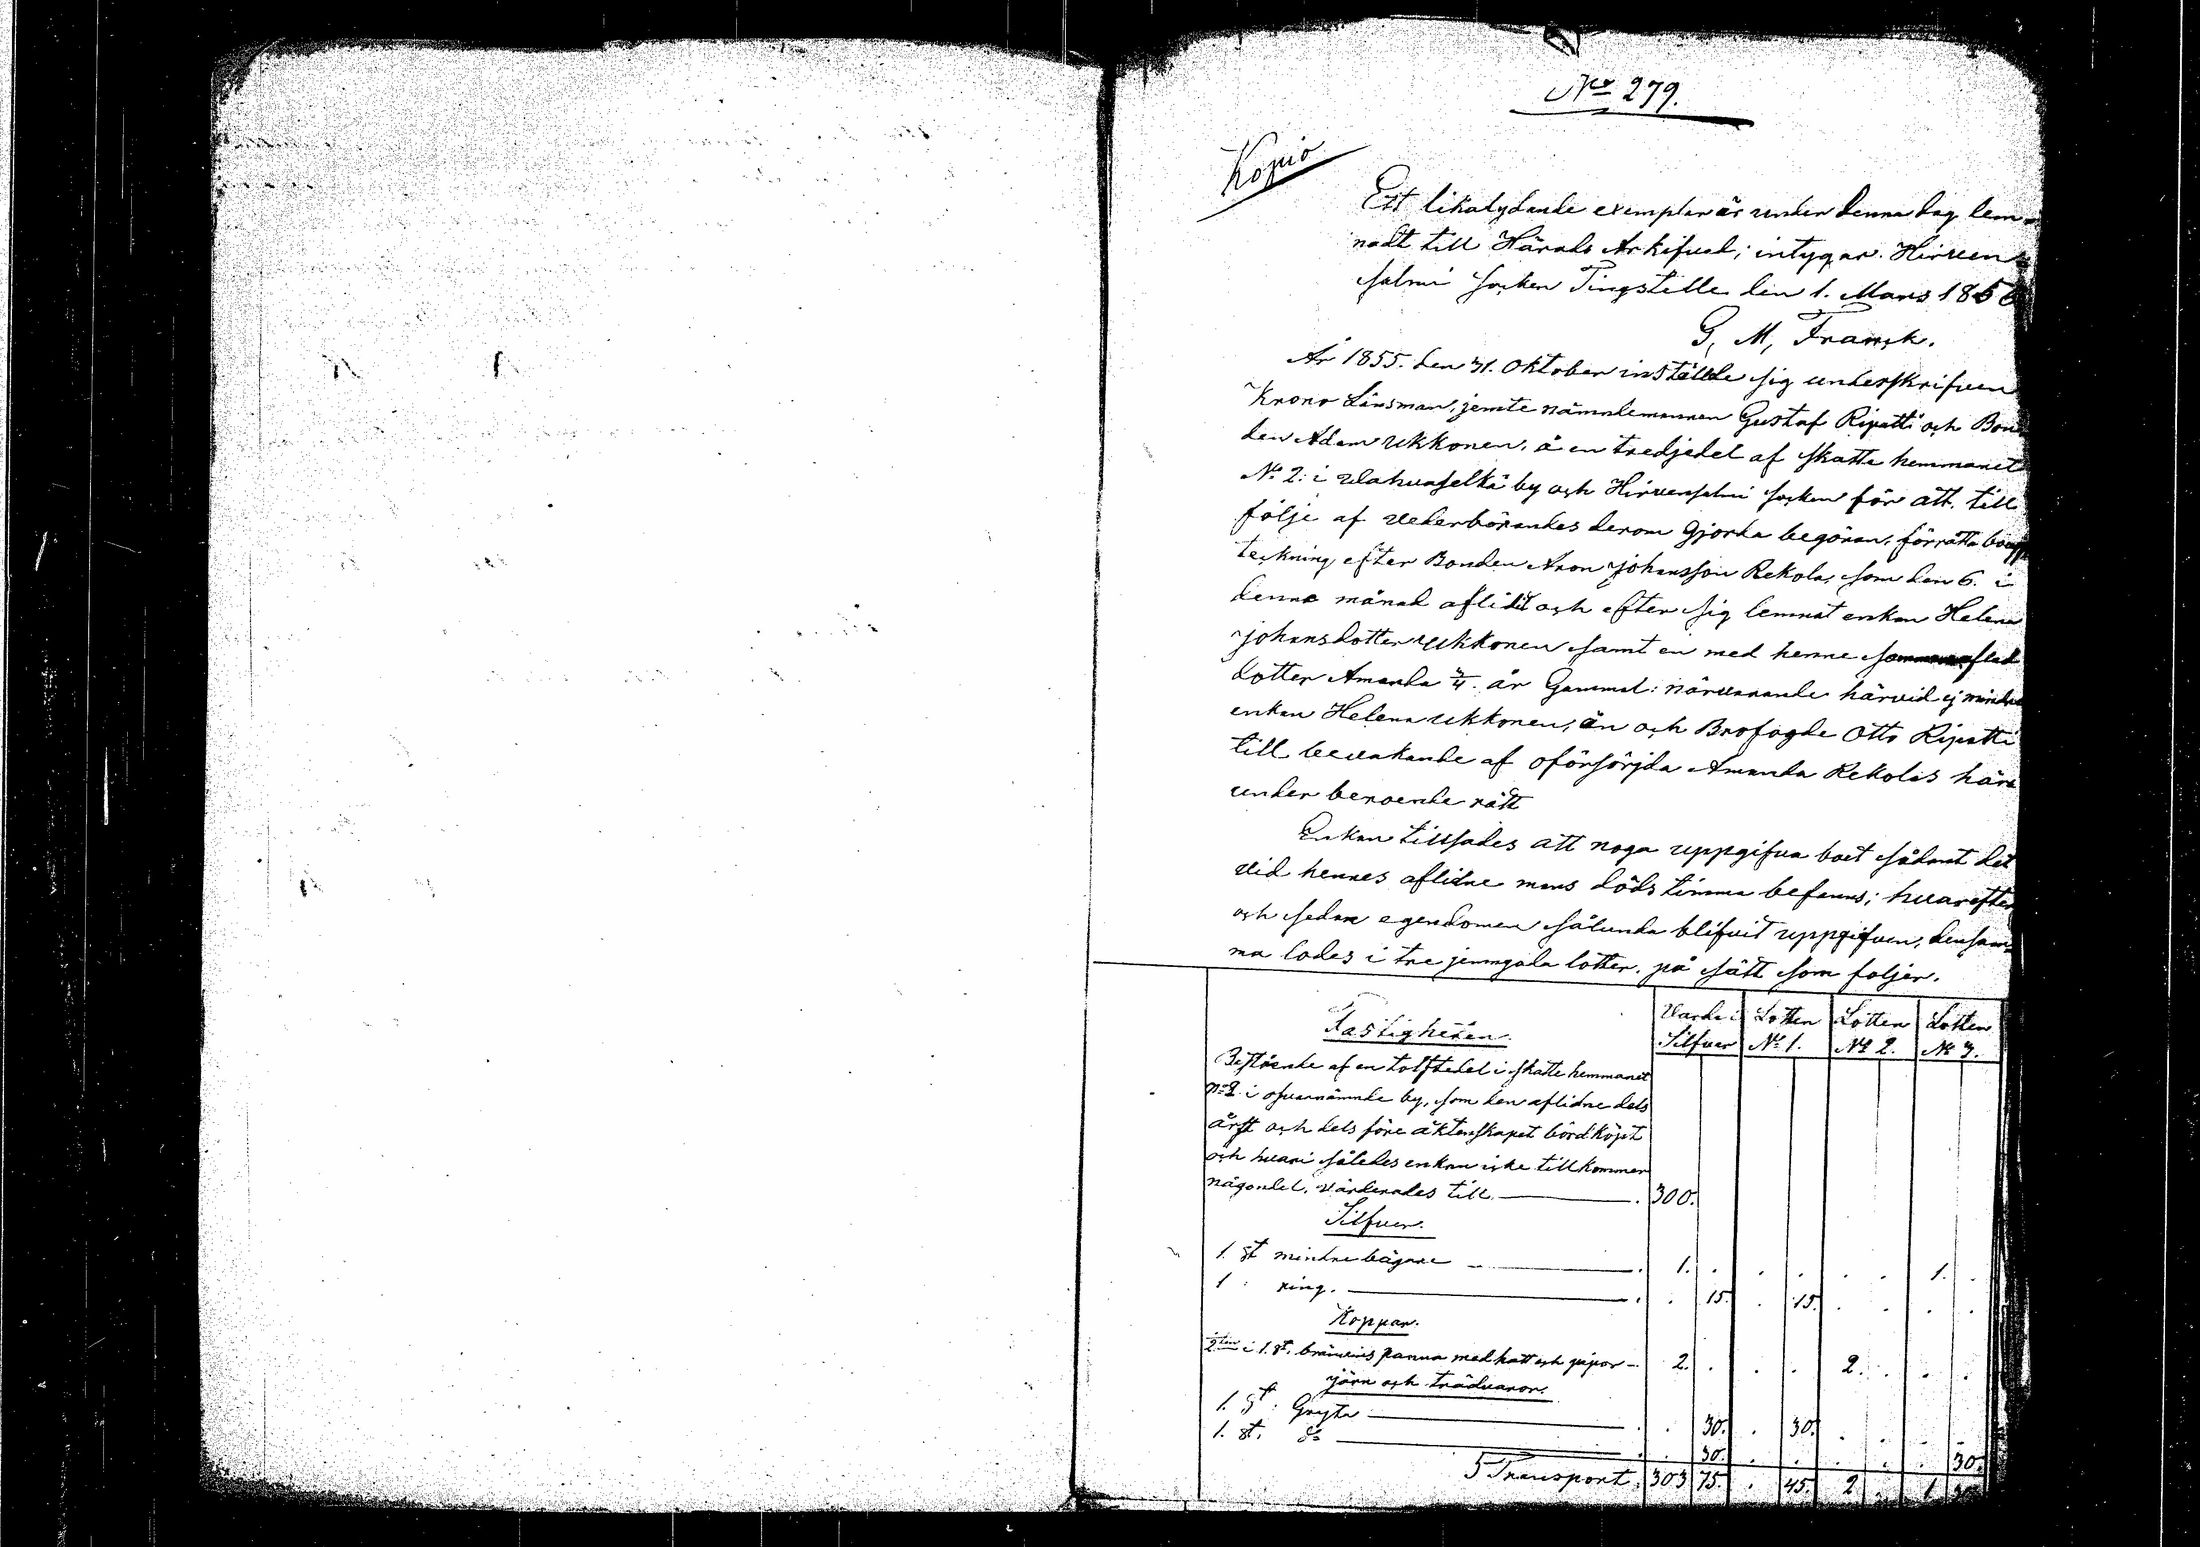 No 279.
Kopia
Ett likalydande exemplar är under denna dag lem-
nadt till Härads Arkifvet; intygar. Hirven-
salmi socken Tingställe den 1. Mars 1856
G, M, Franck.
År 1855. den 31. Oktober instälde sig underskrifven
Krono Länsman, jemte nämndemannen Gustaf Ripatti och Bon-
den Adam Ukkonen, å en tredjedel af skatte hemmanet
No 2: i Vahvaselkä by och Hirvensalmi socken för att, till
följe af vederbörandes derom gjorda begäran, förrätta boupp
teckning efter Bonden Aron Johansson Rekola, som den 6. i
denna månad aflidit och efter sig lemnat enkan Helena
Johansdotter Ukkonen samt en med henne sammanaflad
dotter Amanda 3/4. år Gammal: närvarande härvid ej mindre
enkan Helena Ukkonen, än och Brofogde Otto Ripatti
till bevakande af oförsörjda Amanda Rekolas här
under beroende rätt
Enkan tillsades att noga uppgifva boet sådant det
vid hennes aflidne mans döds timma befanns; hvarefter
och sedan egendomen sålunda blifvit uppgifven, densam-
ma lades i tre jemngoda lotter, på sätt som följer.
Värde i Lotten Lotten Lotten
Silfver No 1. No 2. No 3.
Fastigheten.
Bestående af en tolftedel i skatte hemmanet
No 2 i ofvannämnde by, som den aflidne dels
ärft och dels före äktenskapet bördköpt
och hvari således enkan icke tillkommer
någondel, värderades till 300.
Silfver.
1. st mindre bägare 1. . . . . . 1. .
1 ring. . 15. . 15. . . . .
Koppar.
i 1. st. bränvins panna med hatt och pipor 2. . . . 2. . . .
Järn och trädvaror.
1. st. Gryta . 30. . 30. . . . .
1. st. do . 30. . . . . . 30.
Transport 303 75. . 45. 2 . 1 30